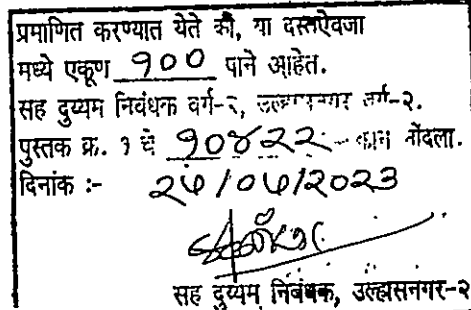 प्रमाणित करण्यात येते की, या दस्तऐवजा
मध्ये एकूण १०० पाने आहेत.
सह दुय्यम निबंधक वर्ग-२, उल्हासनगर वर्ग-२.
पुस्तक क्र. १ चे १०४२२ नोंदला.
दिनांक :- २७/०७/2023
सह दुय्यम निबंधक, उल्हासनगर-२